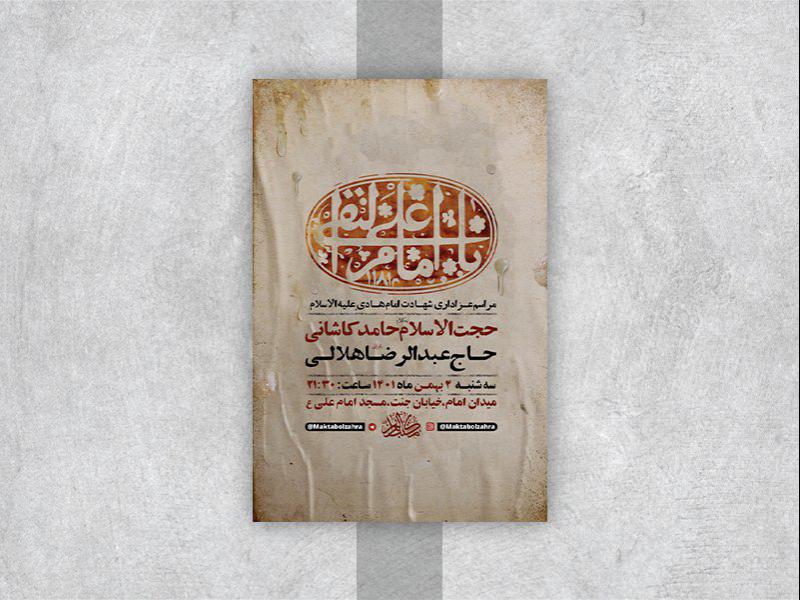 یا امام علی النقی
مراسم عزاداری شهادت امام هادی علیه السلام
حجت الاسلام حامد کاشانی
حاج عبدالرضا هلالی
سه شنبه ۴ بهمن ماه ۱۴۰۱ ساعت: ۲۱:۳۰
میدان امام،خیابان جنت،مسجد امام علی ع
@Maktabolzahra @Maktabolzahra